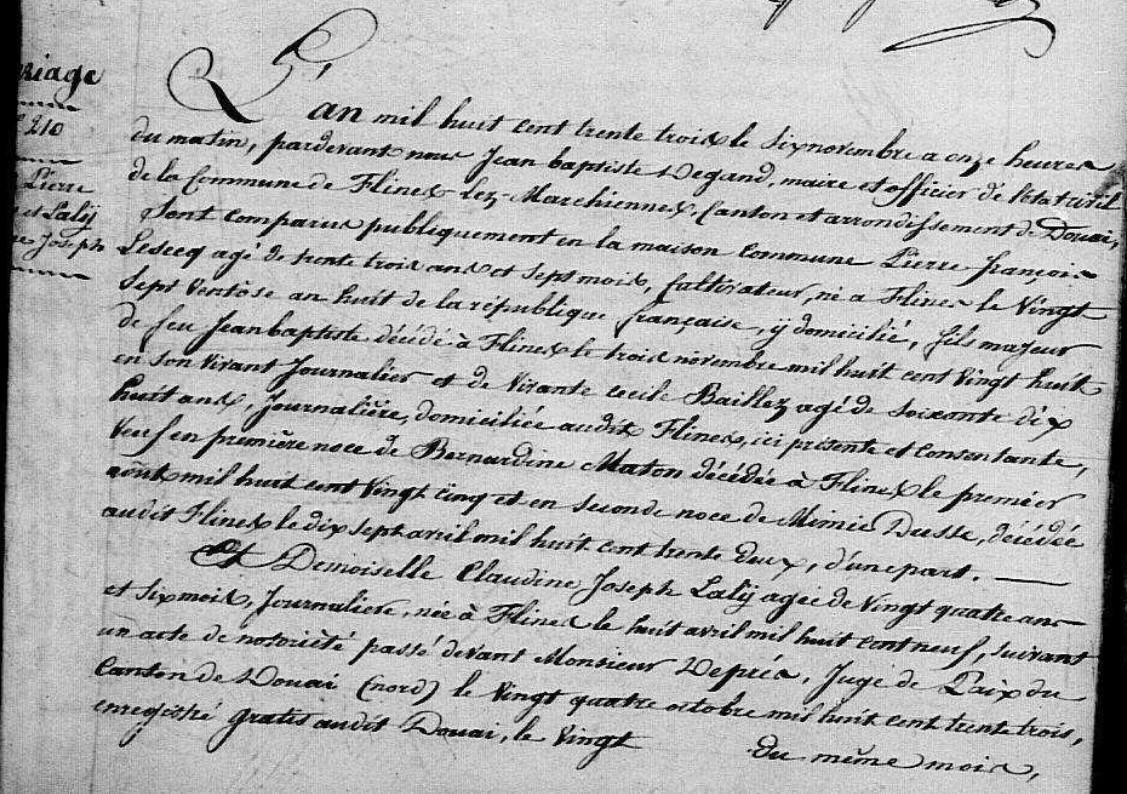 riage
210
Pierre
et Lalÿ
Joseph
L'an mil huit cent trente trois le six novembre a onze heures
du matin, pardevant nous Jean baptiste Degand, maire et officier de l'état civil
de la Commune de Flines-Lez-Marchiennes, Canton et arrondissement de Douai,
Sont comparus publiquement en la maison commune Pierre françois
Lesecq agé de trente trois ans et sept mois, Cultivateur, né a Flines le Vingt
Sept Ventôse an huit de la république française, ÿ domicilié, fils majeur
de feu Jeanbaptiste décédé à Flines le trois novembre mil huit cent Vingt huit
en son vivant Journalier et de Vivante cecile Baillez agé de Soixante dix
huit ans, Journalière, domiciliée audit Flines, ici présente et consentante,
Veuf en première noce de Bernardine Maton décédée à Flines le premier
août mil huit cent Vingt cinq et en seconde noce de Mimie Dusse, décédée
audit Flines le dix sept avril mil huit cent trente deux, d'une part.
Et Demoiselle Claudine Joseph Lalÿ agée de Vingt quatre ans
et Six mois, Journaliere, née à Flines le huit avril mil huit cent neuf, suivant
un acte de notoriété passé devant Monsieur Deprés, Juge de Paix du
Canton de Douai (nord) le Vingt quatre octobre mil huit cent trente trois,
enregistré gratis audit Douai, le Vingt du même mois,